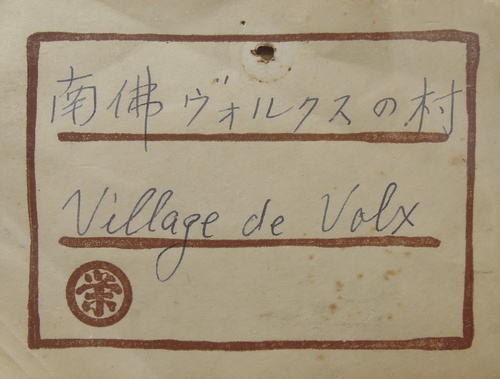 南佛ヴォルクスの村
Village de Volx
栄